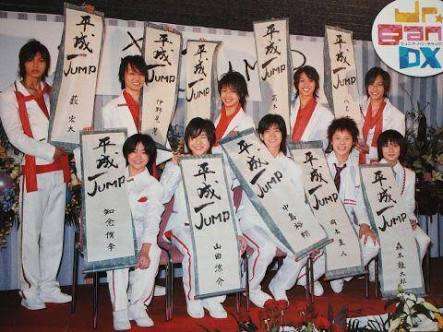 DX
平成
JUMP
薮 宏太
平成
JUMP
伊野尾
平成
JUMP
平成
JUMP
平成
JUMP
平成
JUMP
知念侑李
平成
JUMP
山田涼介
平成
JUMP
中島裕翔
平成
JUMP
岡本圭人
平成
JUMP
森本龍太郎